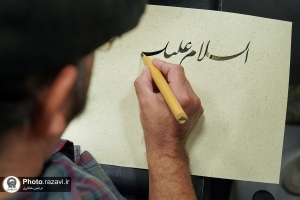 السلام علیک
Photo.razavi.ir